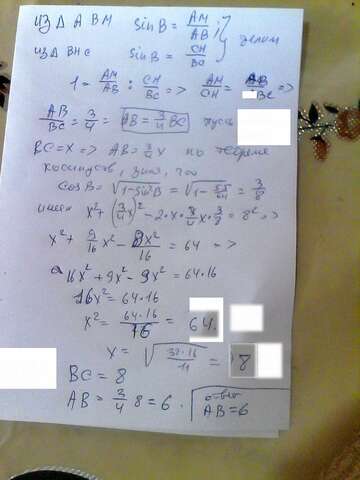 из Δ ABM sin B = AM/AB
из Δ BHC sin B = CH/BC } делим
1 = AM/AB : CH/BC => AM/CH = AB/BC =>
AB/BC = 3/4 = AB = 3/4 BC пусть
BC = x => AB = 3/4 x по теореме
косинусов, зная, что
cos B = √(1-sin²B) = √(1 - 55/64) = 3/8
имеем x² + (3/4 x)² - 2·x·3/4 x·3/8 = 8² =>
x² + 9/16 x² - 9x²/16 = 64 =>
16x² + 9x² - 9x² = 64·16
16x² = 64·16
x² = 64·16/16 = 64.
x = √(32·16/11) = 8
BC = 8
AB = 3/4 8 = 6. ответ
AB = 6